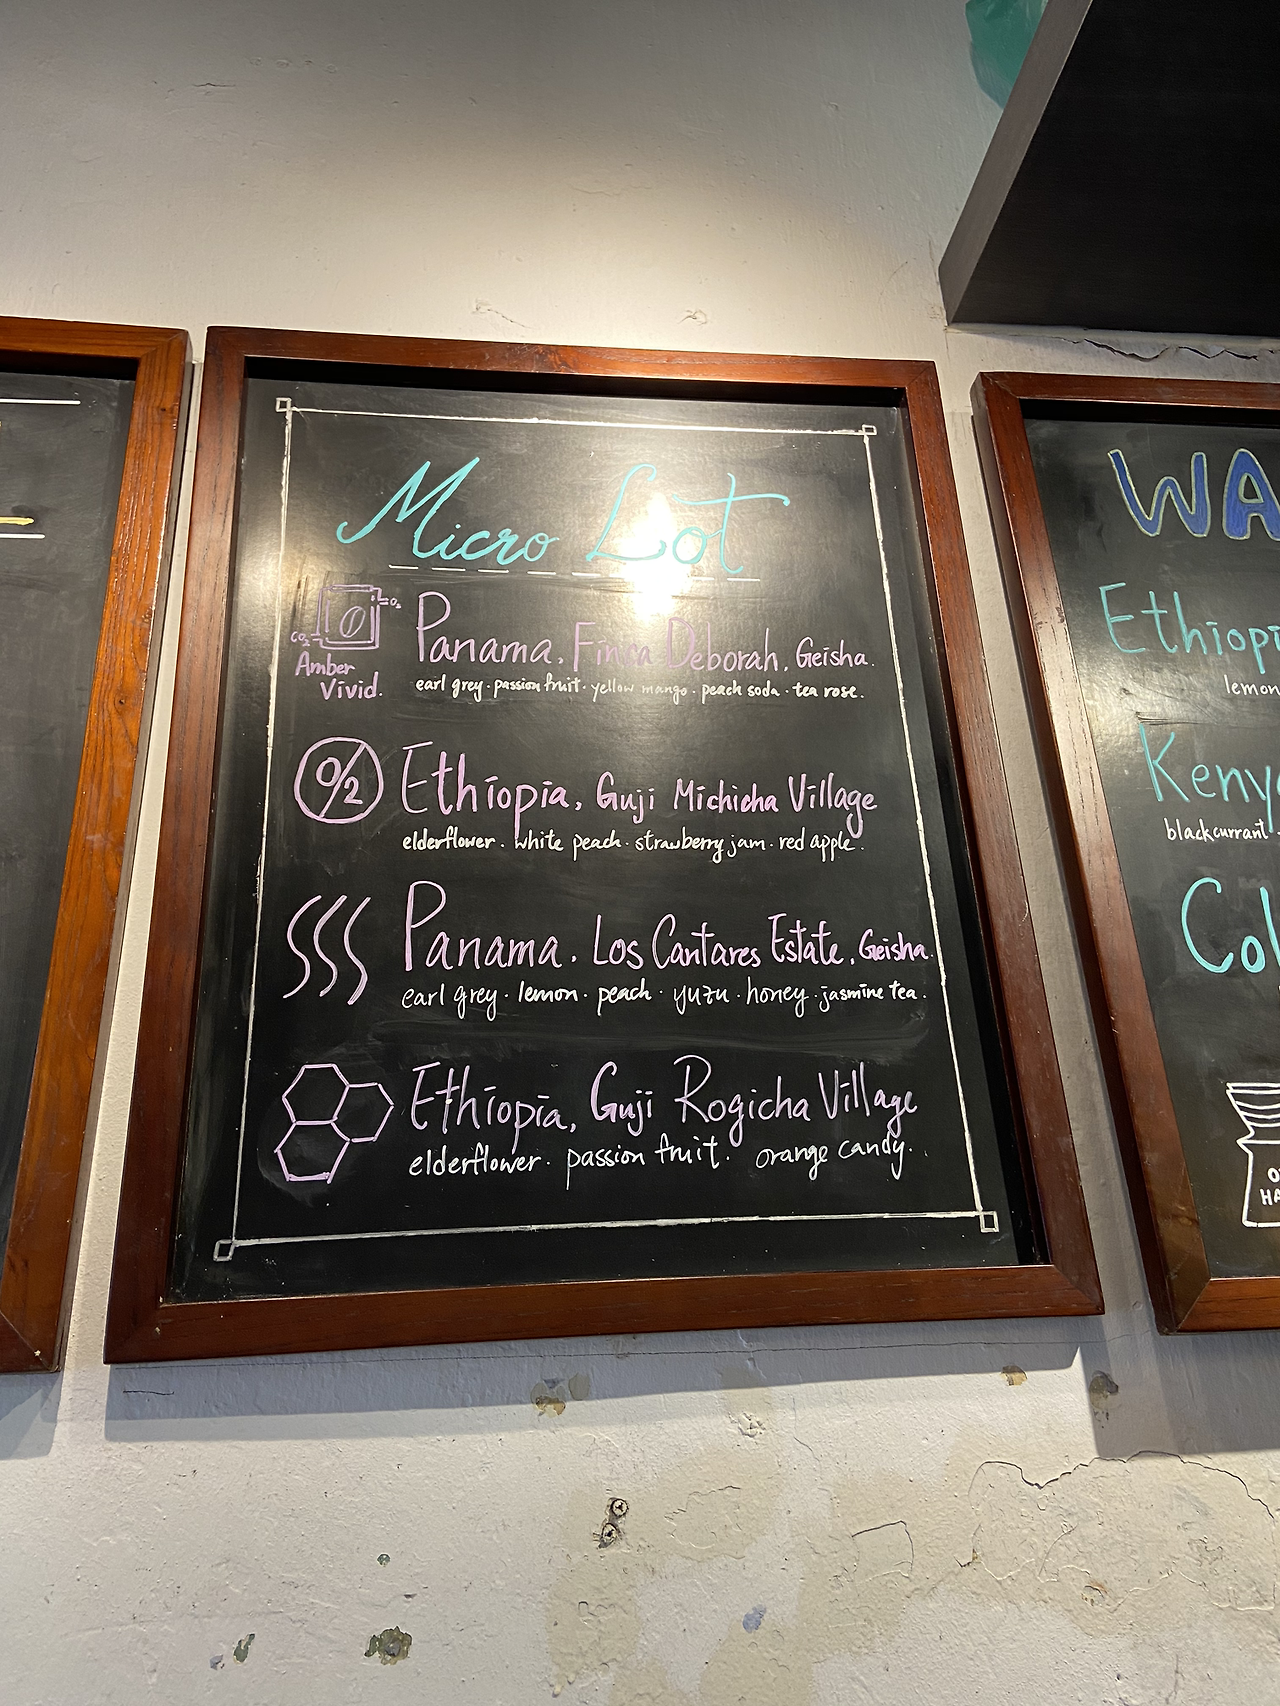 Micro Lot
O₂
CO₂
Amber
Vivid.
Panama, Finca Deborah, Geisha.
earl grey · passion fruit · yellow mango · peach soda · tea rose.
O2
Ethiopia, Guji Michicha Village
elderflower · white peach · strawberry jam · red apple.
Panama, Los Cantares Estate, Geisha.
earl grey · lemon · peach · yuzu · honey · jasmine tea.
Ethiopia, Guji Rogicha Village
elderflower · passion fruit · orange candy.
WA
Ethiopi
lemon
Keny
blackcurrant ·
Col